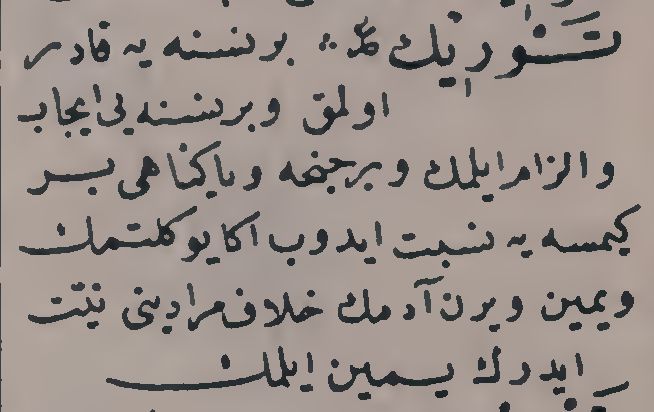 تَوْرِيك برنسنه يه قادر
اولمق وبرنسنه يى ايجاب
والزام ايلمك وبرجنحه ويا كناهى بر
كيمسه يه نسبت ايدوب اكا يوكلتمك
ويمين ويرن آدمك خلاف مرادينى نيّت
ايدرك يمين ايلمك